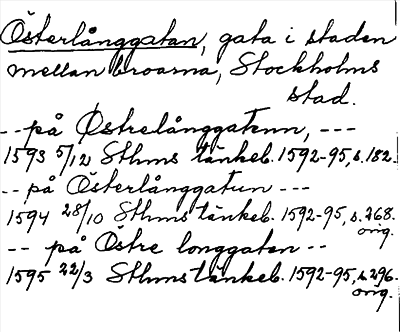 Österlånggatan, gata i staden
mellan broarna, Stockholms
stad.
-- på Østrelånggatunn, ---
1593 5/12 Sthms tänkeb. 1592-95, s. 182.
-- på Österlånggatun ---
1594 28/10 Sthms tänkeb. 1592-95, s. 268.
orig.
-- på Östre longgaten --
1595 22/3 Sthms tänkeb. 1592-95, s. 296.
orig.